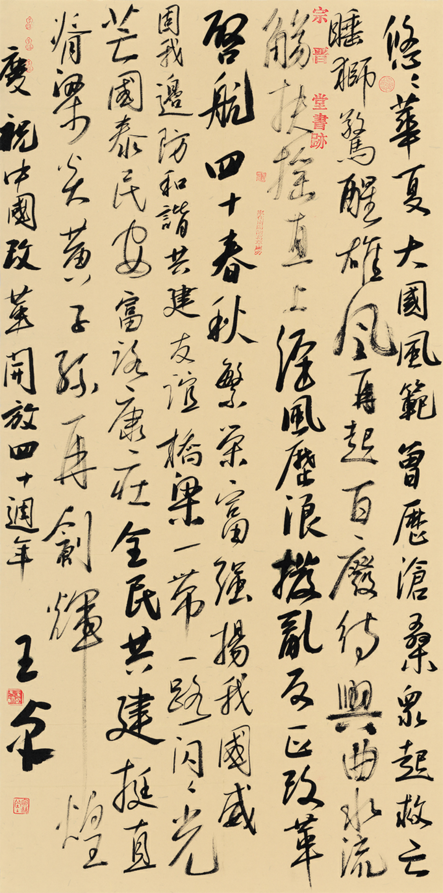 悠々華夏大國風範曾歷滄桑眾起救亡
睡獅驚醒雄風再起百々廢待興曲水流
觴扶摇直上經風歷浪撥亂反正改革
啓航四十春秋繁荣富强揚我國威
固我邊防和諧共建友誼橋梁一带一路一闪々光
芒國泰民安富裕康莊全民共建挺直
脊梁炎黄子孫再創輝煌
慶祝中國改革開放四十週年
王
宗晋堂書跡